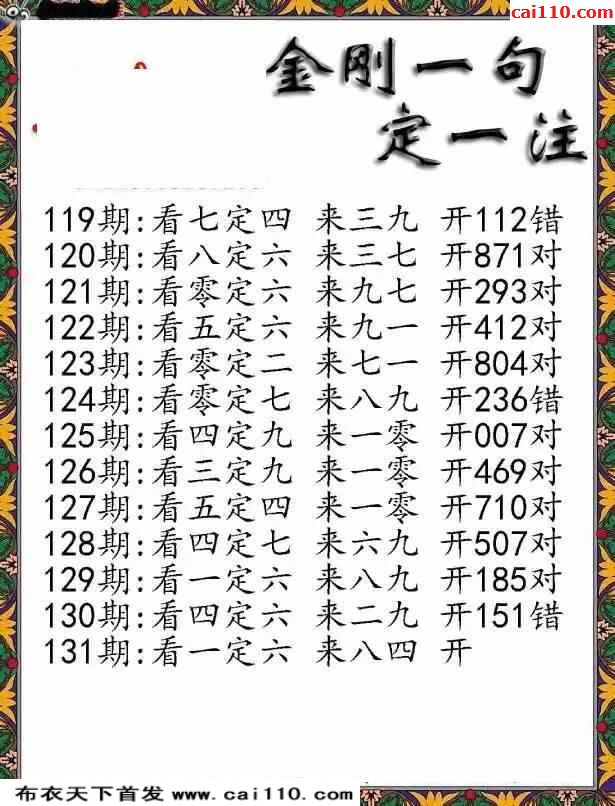 cai110.com
金刚一句
定一注
119期:看七定四 来三九 开112错
120期:看八定六 来三七 开871对
121期:看零定六 来九七 开293对
122期:看五定六 来九一 开412对
123期:看零定二 来七一 开804对
124期:看零定七 来八九 开236错
125期:看四定九 来一零 开007对
126期:看三定九 来一零 开469对
127期:看五定四 来一零 开710对
128期:看四定七 来六九 开507对
129期:看一定六 来八九 开185对
130期:看四定六 来二九 开151错
131期:看一定六 来八四 开
布衣天下首发 www.cai110.com